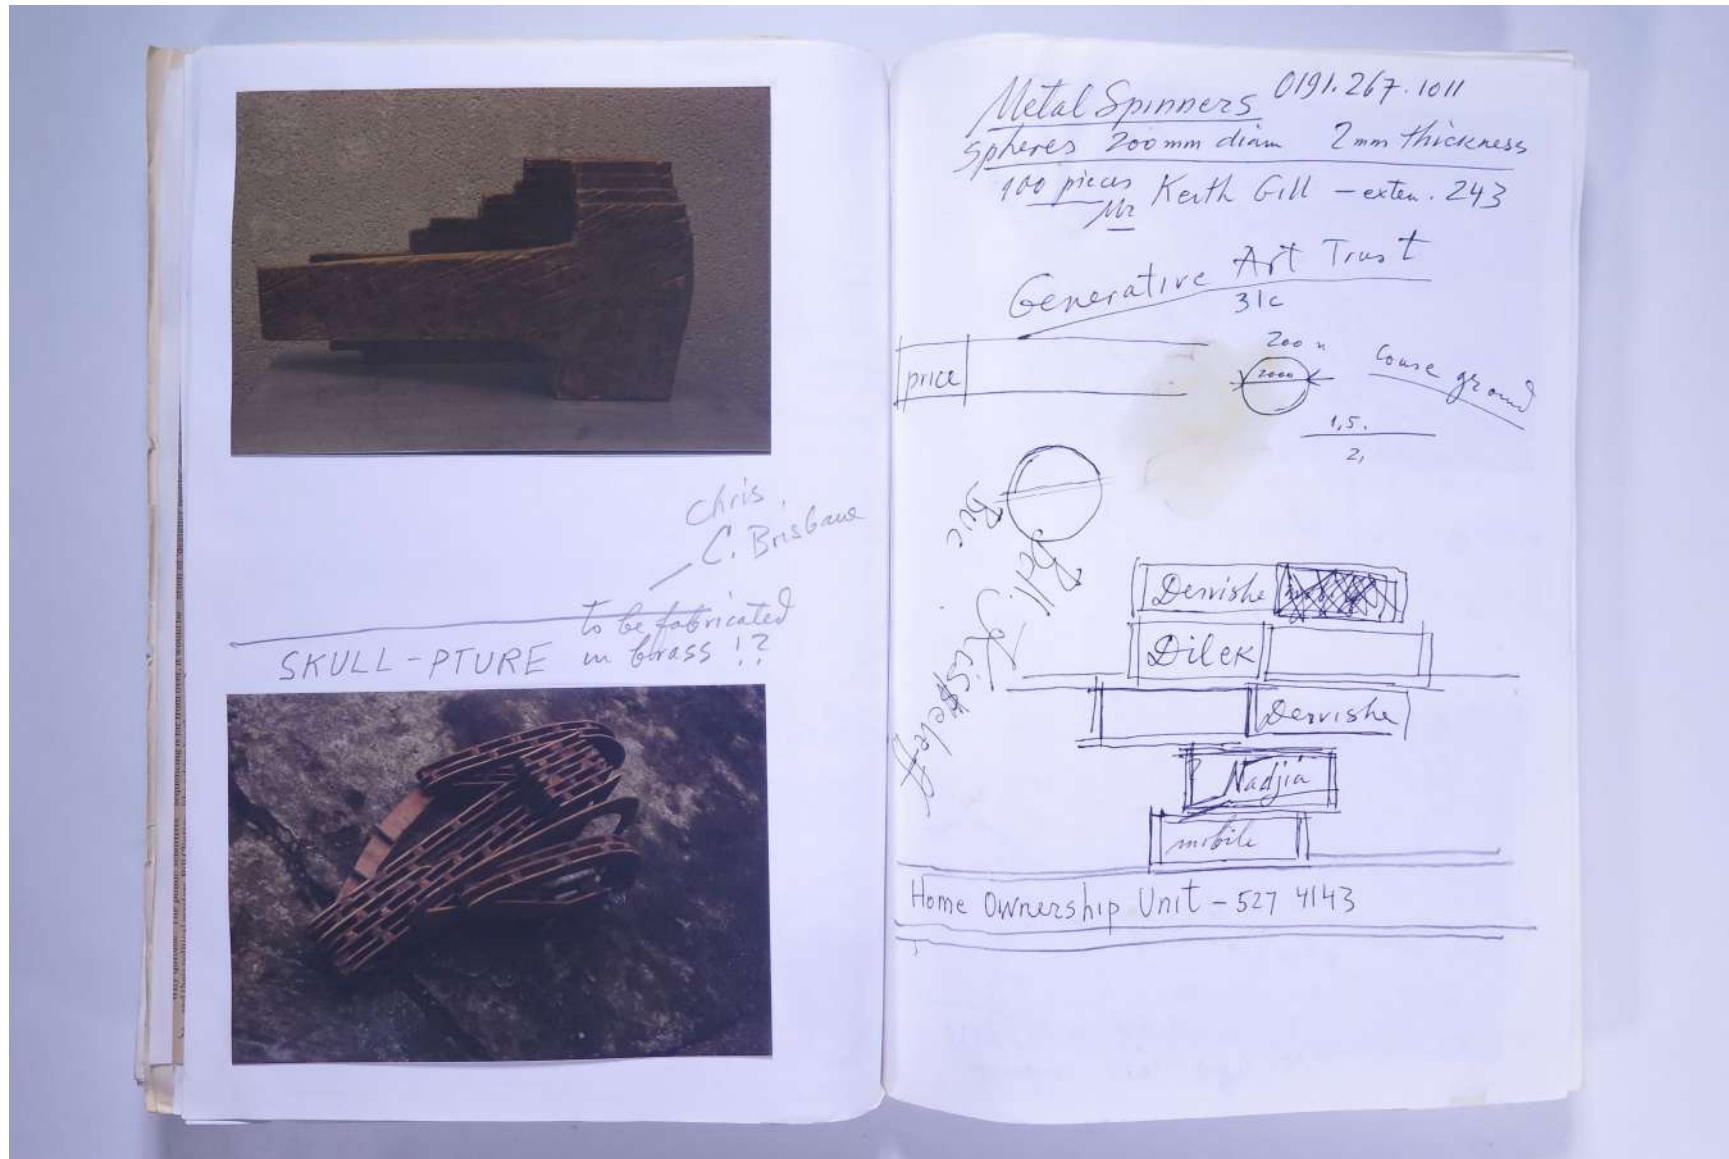 chris.
C. Brisbane
to be fabricated
SKULL-PTURE in brass !?
Metal Spinners 0191.267.1011
Spheres 200mm diam 2mm thickness
100 pieces
Mr Keith Gill – exten. 243
Generative Art Trust
31c
price
200
2000
ground
1,5.
2,
Dervishe
Dilek
Dervishe
Nadjia
mobile
Home Ownership Unit – 527 4143